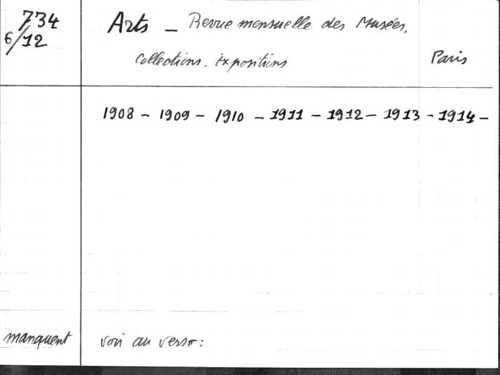 734
6/12
Arts - Revue mensuelle des Musées.
Collections. Expositions
Paris
1908 - 1909 - 1910 - 1911 - 1912 - 1913 - 1914 -
manquent
voir au verso: